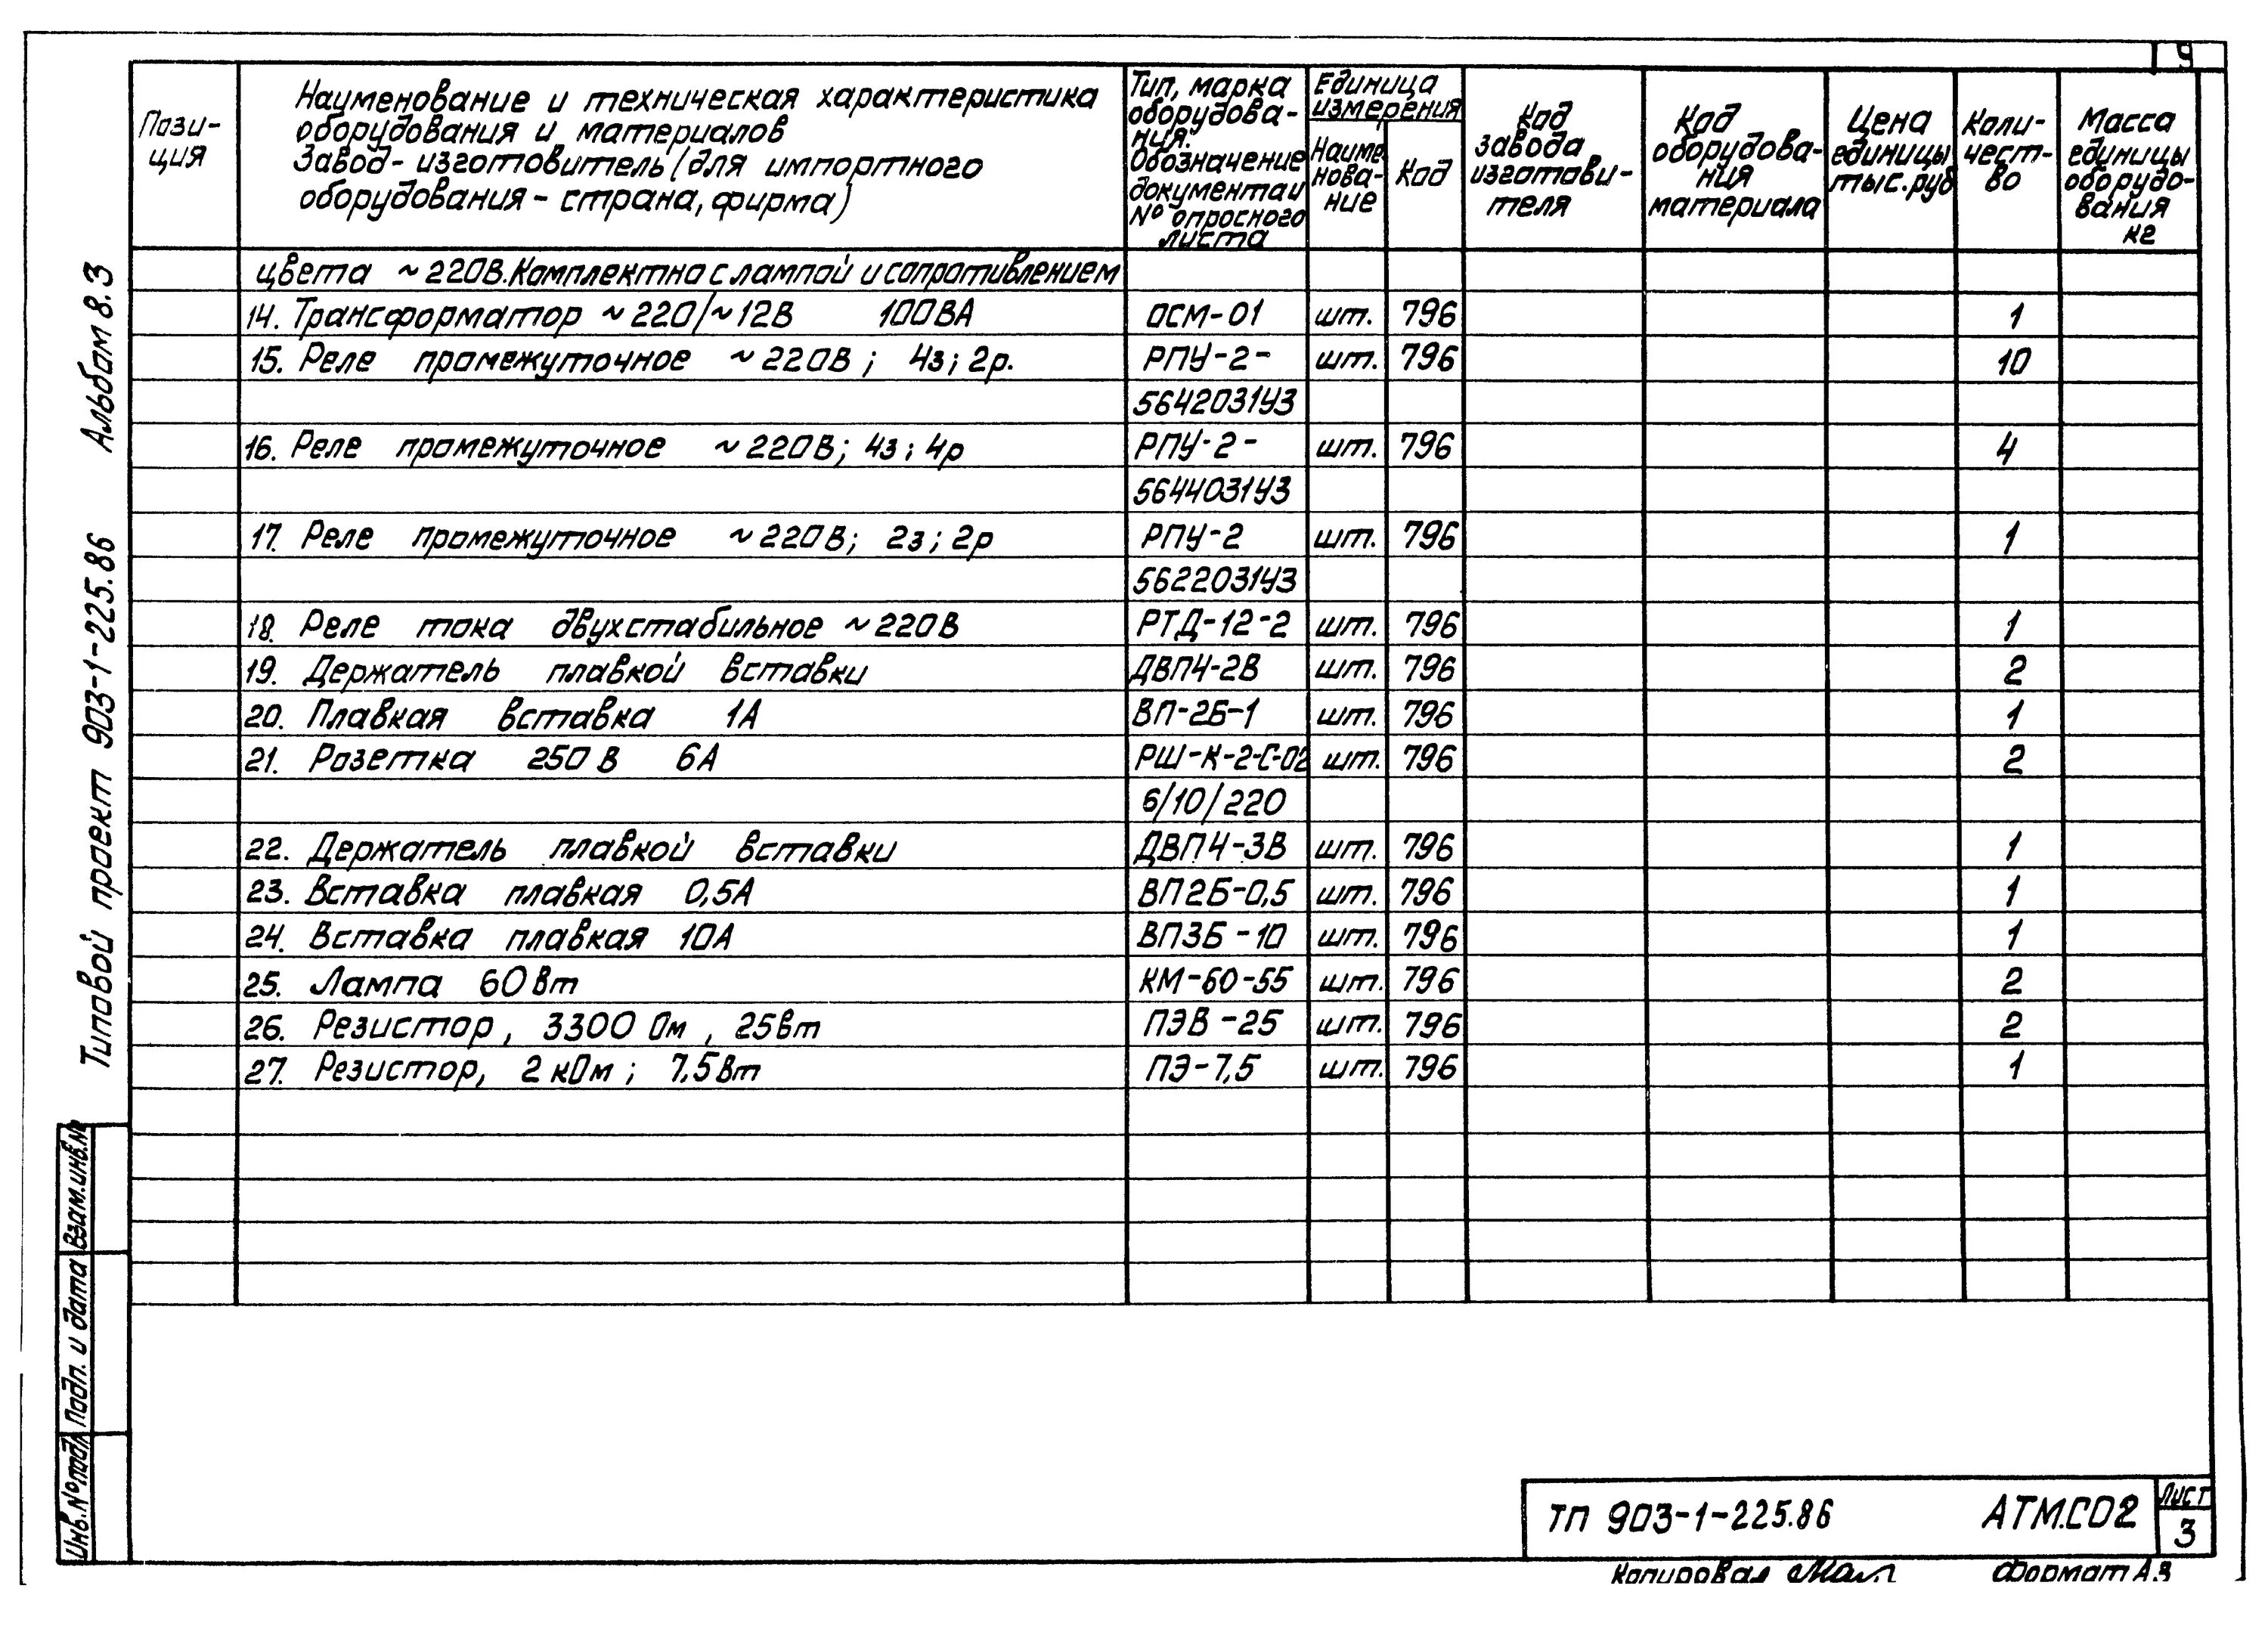 9
Пози-
ция
Наименование и техническая характеристика
оборудования и материалов
Завод-изготовитель (для импортного
оборудования - страна, фирма)
Тип, марка
оборудова-
ния.
Обозначение
документа и
№ опросного
листа
Единица
измерения
Наиме
нова-
ние
Код
Код
завода
изготови-
теля
Код
оборудова-
ния
материала
Цена
единицы
тыс. руб
Коли-
чест-
во
Масса
единицы
оборудо-
вания
кг
цвета ~220В. Комплектно с лампой и сопротивлением
14. Трансформатор ~220/~12В 100ВА ОСМ-01 шт. 796 1
15. Реле промежуточное ~220В; 4з; 2р. РПУ-2- шт. 796 10
5642031У3
16. Реле промежуточное ~220В; 4з; 4р РПУ-2- шт. 796 4
5644031У3
17. Реле промежуточное ~220В; 2з; 2р РПУ-2 шт. 796 1
5622031У3
18. Реле тока двухстабильное ~220В РТД-12-2 шт. 796 1
19. Держатель плавкой вставки ДВП4-2В шт. 796 2
20. Плавкая вставка 1А ВП-2Б-1 шт. 796 1
21. Розетка 250В 6А РШ-К-2-С-02 шт. 796 2
6/10/220
22. Держатель плавкой вставки ДВП4-3В шт. 796 1
23. Вставка плавкая 0,5А ВП2Б-0,5 шт. 796 1
24. Вставка плавкая 10А ВП3Б-10 шт. 796 1
25. Лампа 60Вт КМ-60-55 шт. 796 2
26. Резистор, 3300 Ом, 25Вт ПЭВ-25 шт. 796 2
27. Резистор, 2 кОм; 7,5Вт ПЭ-7,5 шт. 796 1
Типовой проект 903-1-225.86 Альбом 8.3
Взам.инв.№
Подп. и дата
Инв.№ подл
ТП 903-1-225.86 АТМ.СО2
Лист
3
Копировал
Формат А3